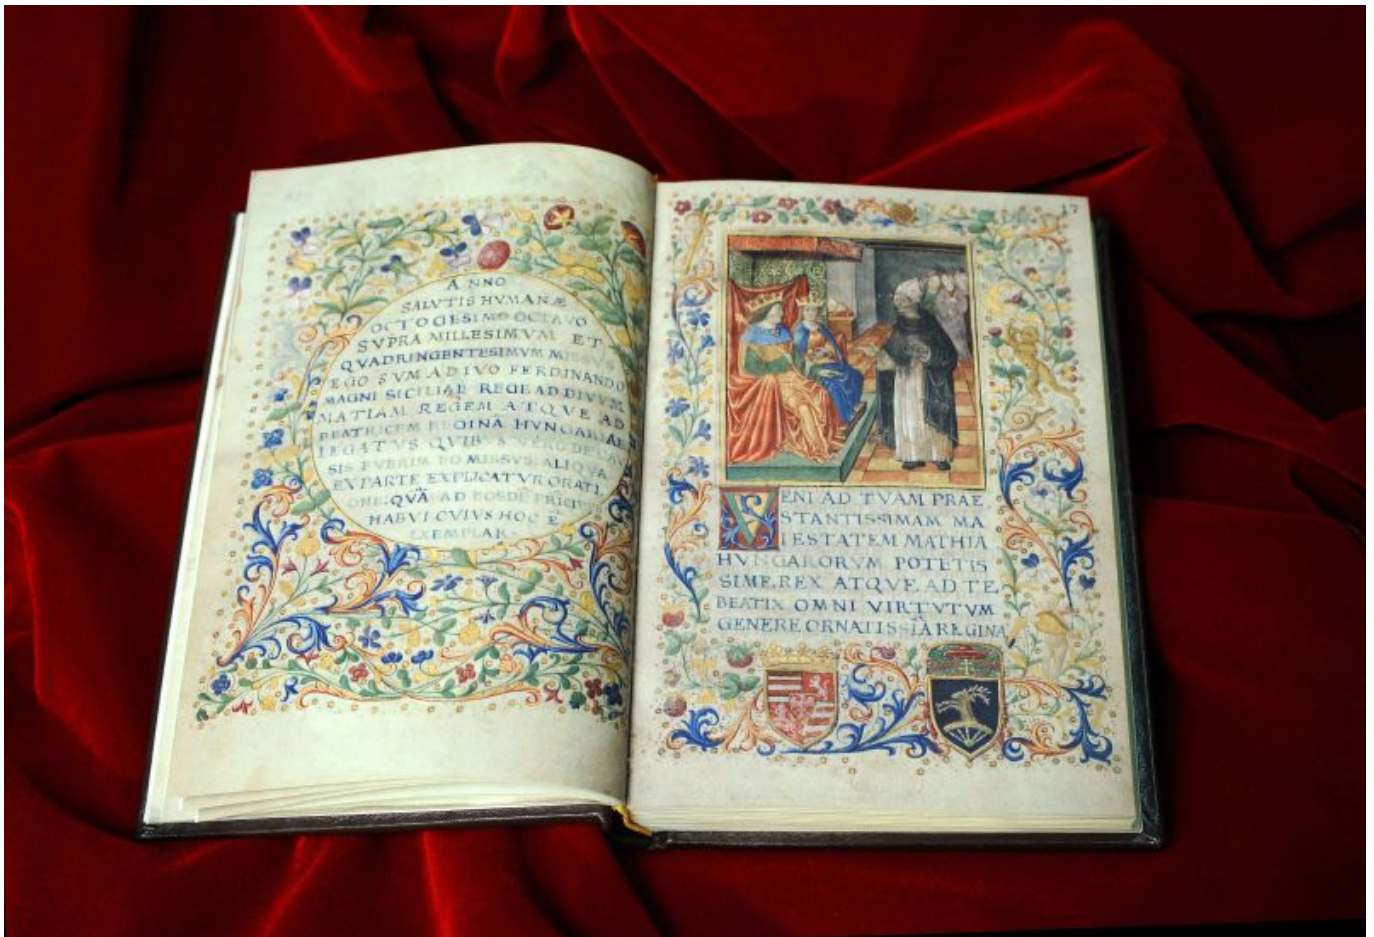 ANNO
SALVTIS HVMANÆ
OCTOGESIMO OCTAVO
SVPRA MILLESIMVM ET
QVADRINGENTESIMVM MISSVS
EGO SVM AD IVO FERDINANDO
MAGNI SICILIAE REGE AD DIVVM
MATIAM REGEM ATQVE AD
BEATRICEM REGINA HVNGARIAE
LEGATVS QVIBVS VERO DE CAV
SIS FVERIM EO MISSVS: ALIQVA
EX PARTE EXPLICATVR ORATI
ONE: QVĀ AD EOSDĒ
HABVI CVIVS HOC Ē
EXEMPLAR
17
VENI AD TVAM PRAE
STANTISSIMAM MA
IESTATEM MATHIA
HVNGARORVM POTETIS
SIME. REX ATQVE AD TE
BEATIX OMNI VIRTVTVM
GENERE ORNATISSIĀ REGINA